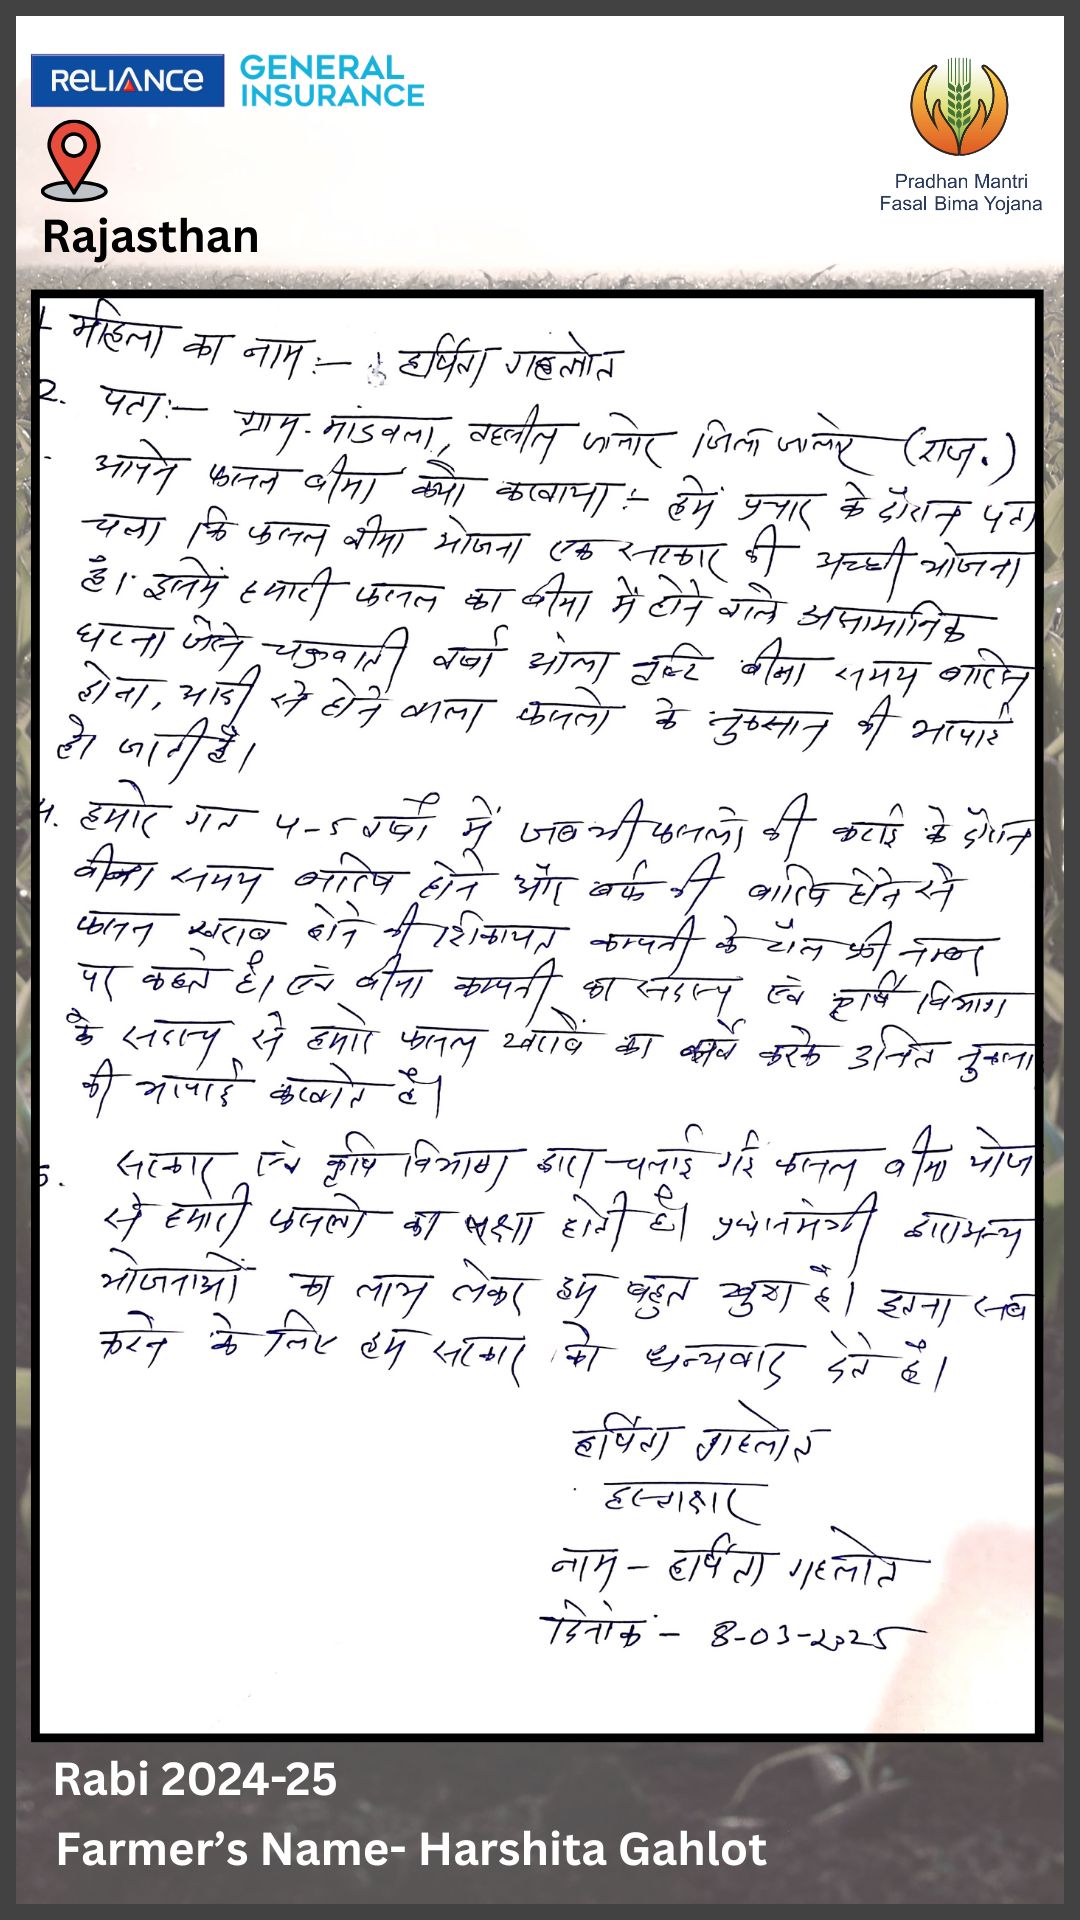 RELIANCE GENERAL INSURANCE
Pradhan Mantri
Fasal Bima Yojana
Rajasthan
1 महिला का नाम:- हर्षिता गहलोत
2. पता:- ग्राम- मांडवला, तहसील जालोर जिला जालोर (राज.)
आपने फसल बीमा क्यों करवाया:- हमें प्रचार के दौरान पता
चला कि फसल बीमा योजना एक सरकार की अच्छी योजना
है। इसमें हमारी फसल का बीमा में होने वाले असामानिक
घटना जैसे चक्रवाती वर्षा ओला वृष्टि बीना समय बारिश
होना, आदी से होने वाला फसलो के नुकसान की भरपाई
हो जाती है।
4. हमारे गत 4-5 वर्षों में जब भी फसलो की कटाई के दौरान
बीना समय बारिश होने और बर्फ की बारिश होने से
फसल खराब होने की शिकायत कम्पनी के टोल फ्री नम्बर
पर करते है। एवं बीमा कम्पनी का सदस्य एवं कृषि विभाग
के सदस्य से हमारे फसल खराबे का सर्वे करके उचित नुकसा
की भरपाई करवाते है।
5. सरकार एवं कृषि विभाग द्वारा चलाई गई फसल बीमा योज
से हमारी फसलो का सुरक्षा होती है। प्रधानमंत्री द्वारा अन्य
योजनाओं का लाभ लेकर हम बहुत खुश है। इतना सब
करने के लिए हम सरकार को धन्यवाद देते है।
हर्षिता गहलोत
हस्ताक्षर
नाम - हर्षिता गहलोत
दिनांक - 8-03-2025
Rabi 2024-25
Farmer's Name- Harshita Gahlot